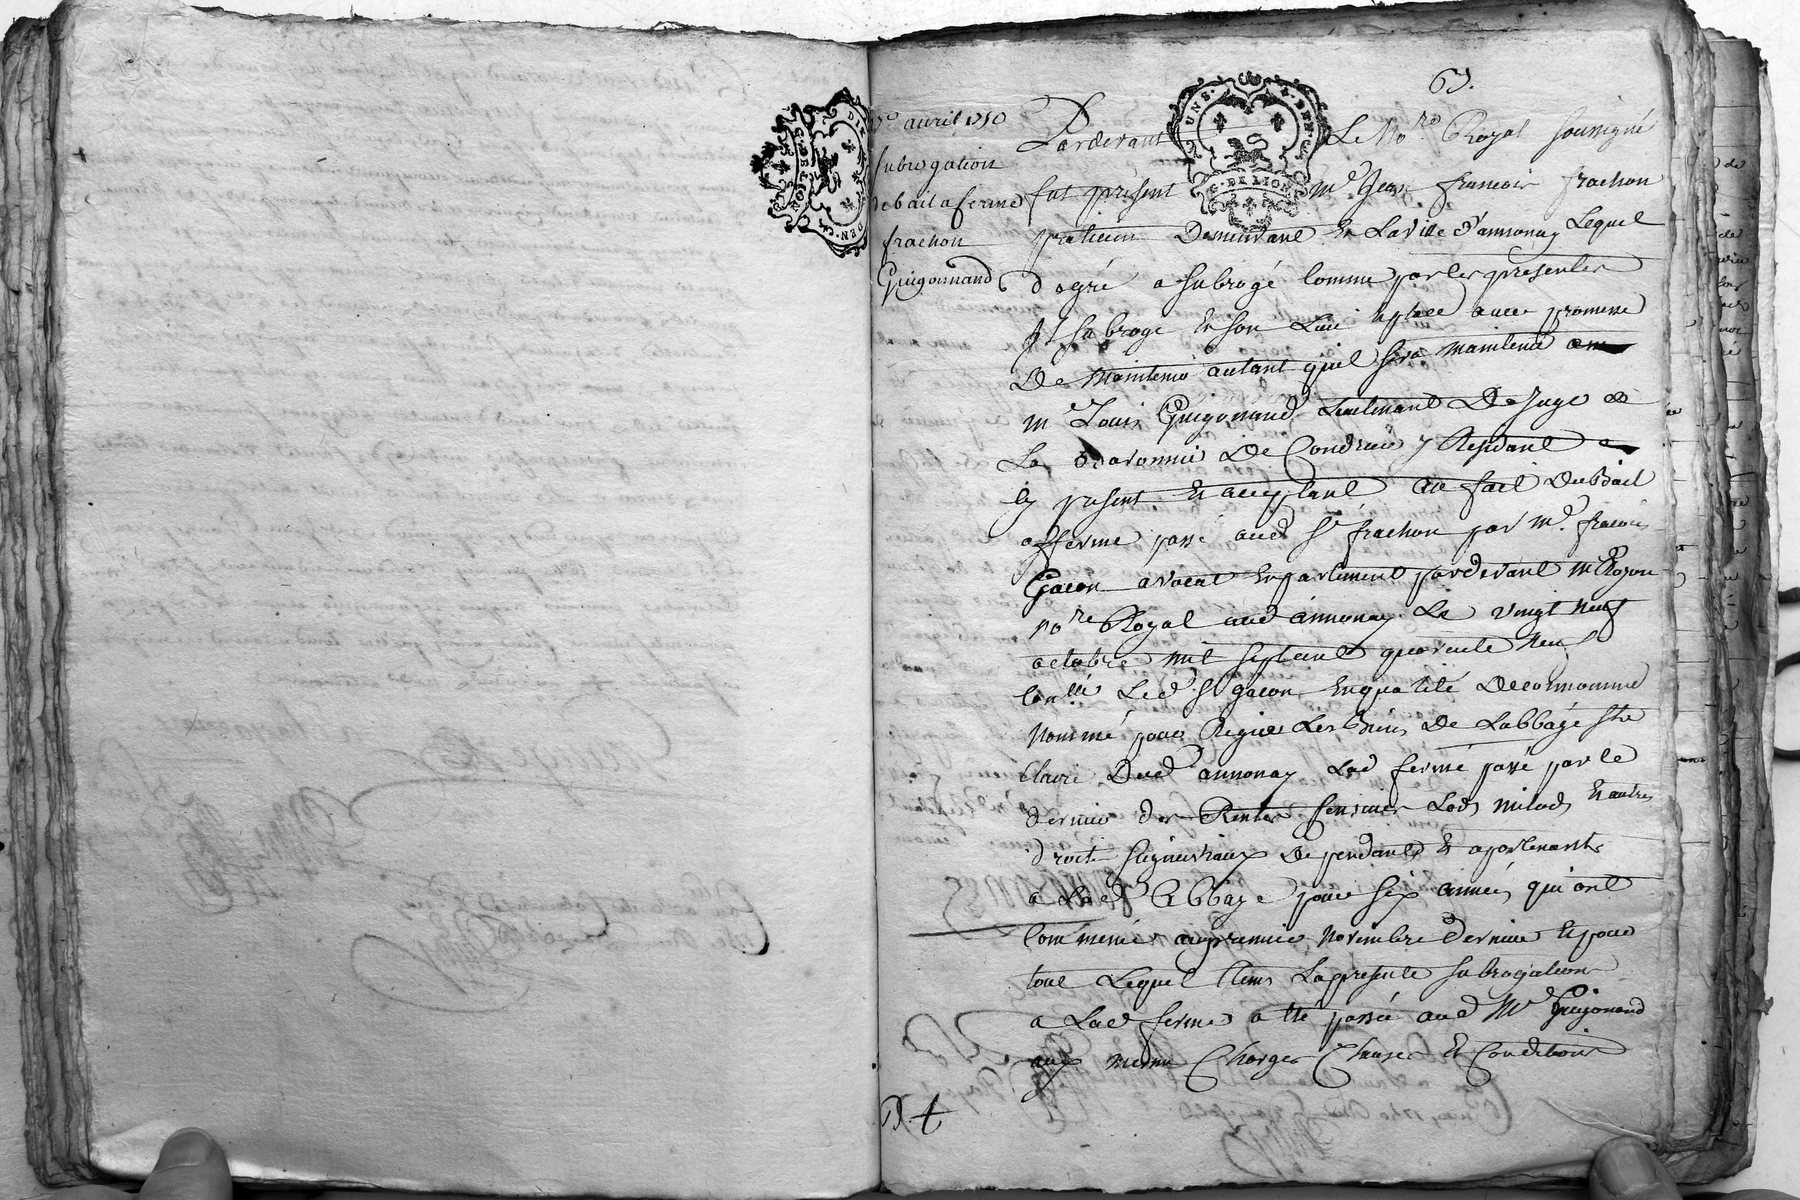 63.
avril 1750
subrogation
de bail a ferme
frachon
Guigonnand
Pardevant Le No.re Royal soussigné
fut présent m.e Jean françois frachon
praticien Demeurant En La ville d'annonay Lequel
dagré a subrogé Comme par les presentes
Il subroge En son Lieu Et place avec promesse
De maintenir autant quil sera maintenu a
m.e Louis Guigonnand Lieutenant De Juge de
La Baronnie De Condrieu y Residant
Cy present Et acceptant au fait Du Bail
a fferme passé aud s.r frachon par M.e francois
Gacon avocat En parlement pardevant m.e
No.re Royal aud annonay Le vingt neuf
octobre mil sept cent quarante neuf
Led s.r Gacon En qualité De
Nommé pour Regir Les Biens De Labbaye Ste
Claire Dud annonay Lad ferme passé par le
dernier des Rentes Censives Lods milods Et autres
droits seigneuriaux Dependants Et apartenants
a Lad Abbaye pour six années qui ont
Commencé au premier Novembre Dernier Et pour
tout Lequel tems La presente subrogation
a Lad ferme a été passée aud M.e Guigonnand
aux mesmes Charges Clauses Et Conditions
UNS. DEN.
G. DE LION
DIX DEN.
G. DE LION